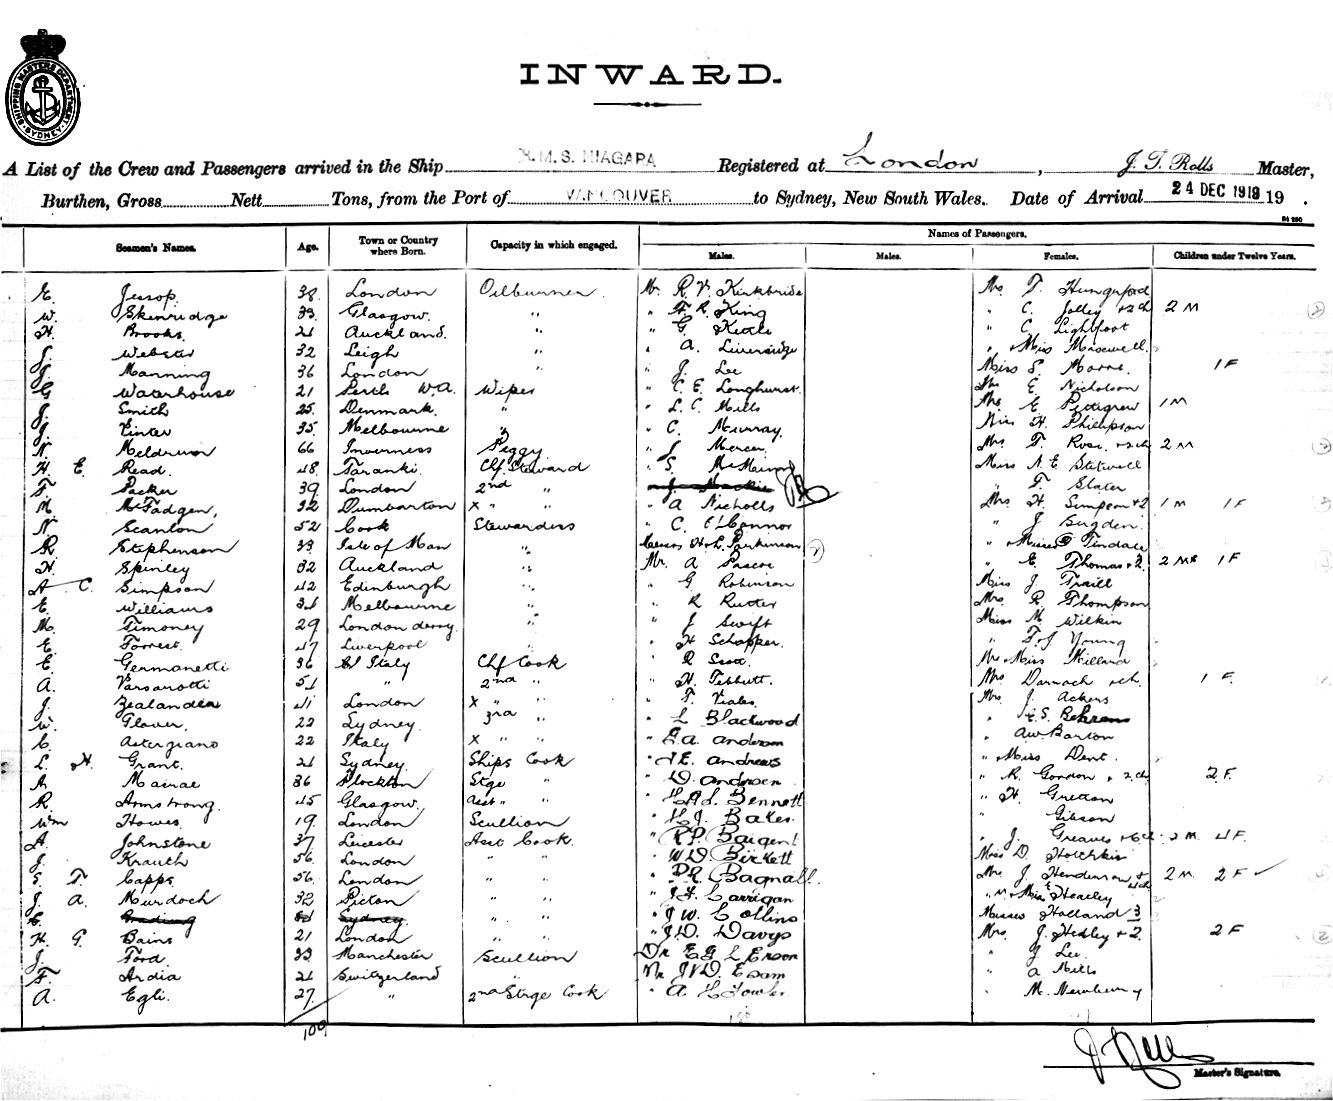 SHIPPING MASTERS DEPARTMENT SYDNEY
INWARD.
A List of the Crew and Passengers arrived in the Ship R.M.S. NIAGARA Registered at London, J. T. Rolls Master,
Burthen, Gross Nett Tons, from the Port of VANCOUVER to Sydney, New South Wales. Date of Arrival 24 DEC 1918 19 .
Seamen's Names. Age. Town or Country where Born. Capacity in which engaged. Names of Passengers.
Males. Males. Females. Children under Twelve Years.
E. Jessop. 38. London Oilburner Mr R. V. Kirkbride Mrs T. Hungerford
W. Skenridge 33 Glasgow. " " H. R. King " C. Jolley + 2 ch 2 M
H. Brooks. 21 Auckland. " " G. " C. Lightfoot
J. Webster 32 Leigh " " A. Liversidge " Miss Maxwell.
J. Manning 36 London " " J. Lee Miss S. 1 F
G Waterhouse 21 Perth W.A. Wiper " C. E. Longhurst. Mrs E. Nicholson
J. Smith 25. Denmark. " " L. C. Mills Mrs E Pettigrew 1 M
J. Pinter 35. Melbourne " " C. Murray. Miss H. Phillipson
N. Meldrum 66 Inverness Peggy " J. Mercer Mrs T. + 2 ch 2 M
H. E. Read. 48 Taranki. Chf. Steward " S. Miss N. E. Stilwell
F. Packer 39 London 2nd " " J. Mackie " F. Slater
M. McFadgen, 32 Dumbarton X " " " A Nicholls Mrs H. Simpson + 2 1 M 1 F
N. Scanlon 52 Cook Stewardess " C. O'Connor " J. Bugden.
R. Stephenson 33 Isle of Man " Messrs H & L. Parkinson " Misses Tindale
H. Spinley 32 Auckland " Mr. A Pascoe " E. Thomas + 3. 2 M 1 F
A C. Simpson 42 Edinburgh " " G Robinson Miss J. Traill
E. Williams 34 Melbourne " " R Rutter Mrs. R. Thompson
M. Timoney 29 London derry. " " J Swift Miss M. Wilkin
E. Forrest. 47 Liverpool " " H Schapper. " F. J. Young
E. Germanetti 36 Italy Chf Cook " R Scott Mr Miss Milland
A. Varsarotti 51 " 2nd " " H. Tebbutt. Mrs Darroch + ch. 1 F.
J. Zealander 41 London X " " " F. Viales. Mrs. J. Ackers
W. Glover. 22 Sydney. 3rd " " L Blackwood " E. S. Behrens
C. Astergiano 22 Italy X " " " G. A. Anderson " A W Barton
L. H. Grant. 21 Sydney. Ships Cook " J E. Andrews " Miss Dent.
A. Mairae 36 Plockton Stge " " D. Andersen " R. Gordon + 2 ch 2 F.
R. Armstrong. 45 Glasgow. Asst " " " H A L. Bennett " H. Gretton
Wm Howes. 19. London Scullion " H. J. Bates. " Gibson
A. Johnstone 37. Leicester Asst Cook. " R P. Bargent " J. Greaves + 6 ch. 2 M. 4 F.
J. Krauth 56. London " " " W D Birkett Miss D. Hotchkis
S. T. Capps. 56. London " " " P. R. Bagnall. Mrs J. Henderson + 4 ch 2 M 2 F
J. A. Murdoch 32 Picton " " " J. H. Carrigan " Miss E Heacley
C. Grading 51 Sydney " " " J W. Collins Misses Holland 3
H. G. Bains 21 London " " " J. D. Davys Mrs. J. Hedley + 2. 2 F
J. Ford. 33 Manchester Scullion Dr E G L Erson " J Lee
F. Ardia 21 Switzerland " Mr J V D. Esam " A Mills
A. Egli. 27 " 2nd Stge Cook " A H Fowler. " M. Newbery
109
J T Rolls
Master's Signature.